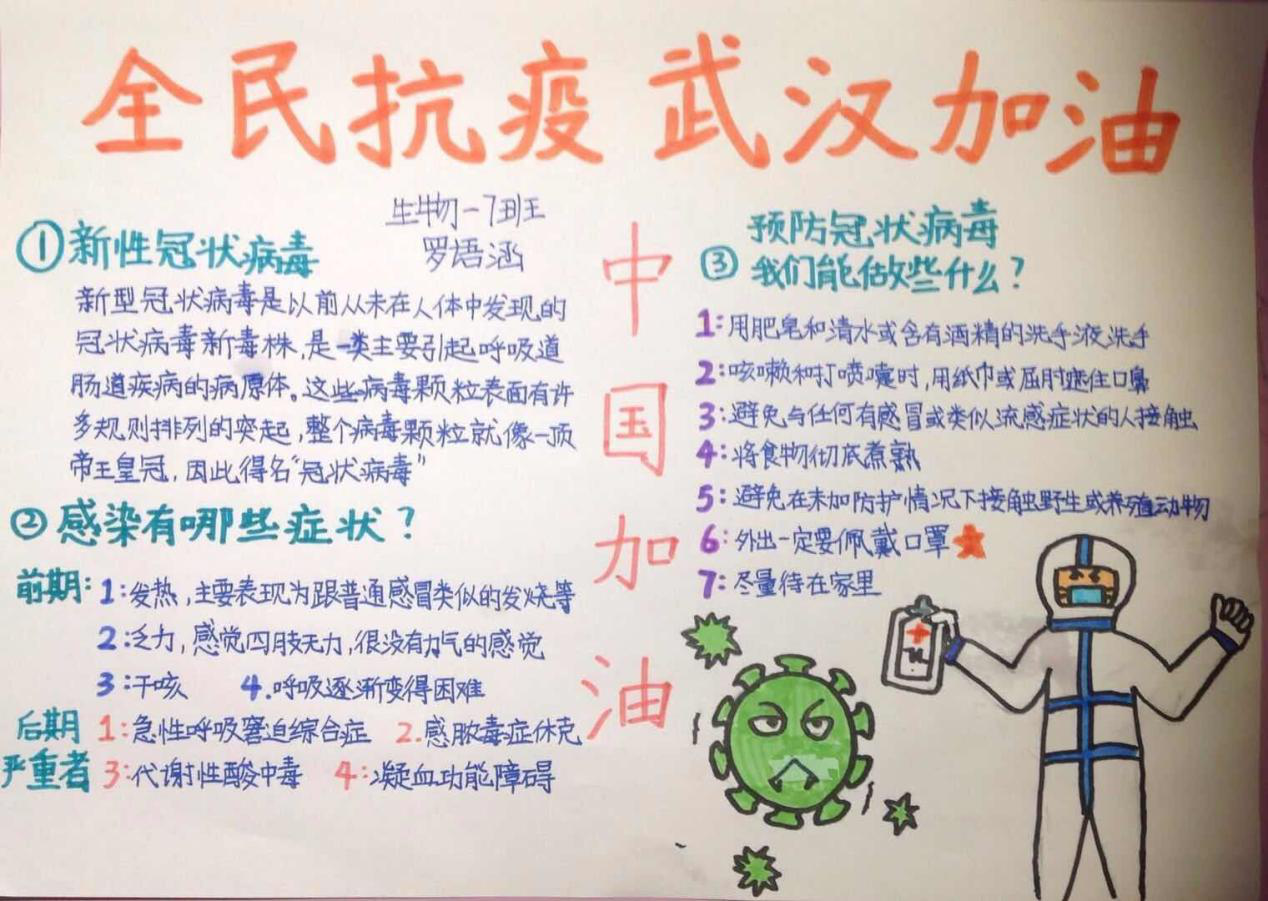 全民抗疫 武汉加油
生物一7班
罗语涵
①新性冠状病毒
新型冠状病毒是以前从未在人体中发现的
冠状病毒新毒株,是一类主要引起呼吸道
肠道疾病的病原体。这些病毒颗粒表面有许
多规则排列的突起,整个病毒颗粒就像一顶
帝王皇冠,因此得名“冠状病毒”
②感染有哪些症状?
前期:1:发热,主要表现为跟普通感冒类似的发烧等
2:乏力,感觉四肢无力,很没有力气的感觉
3:干咳 4.呼吸逐渐变得困难
后期
严重者
1:急性呼吸窘迫综合症 2.感脓毒症休克
3:代谢性酸中毒 4:凝血功能障碍
中
国
加
油
③预防冠状病毒
我们能做些什么?
1:用肥皂和清水或含有酒精的洗手液洗手
2:咳嗽和打喷嚏时,用纸巾或屈肘遮住口鼻
3:避免与任何有感冒或类似流感症状的人接触
4:将食物彻底煮熟
5:避免在未加防护情况下接触野生或养殖动物
6:外出一定要佩戴口罩
7:尽量待在家里